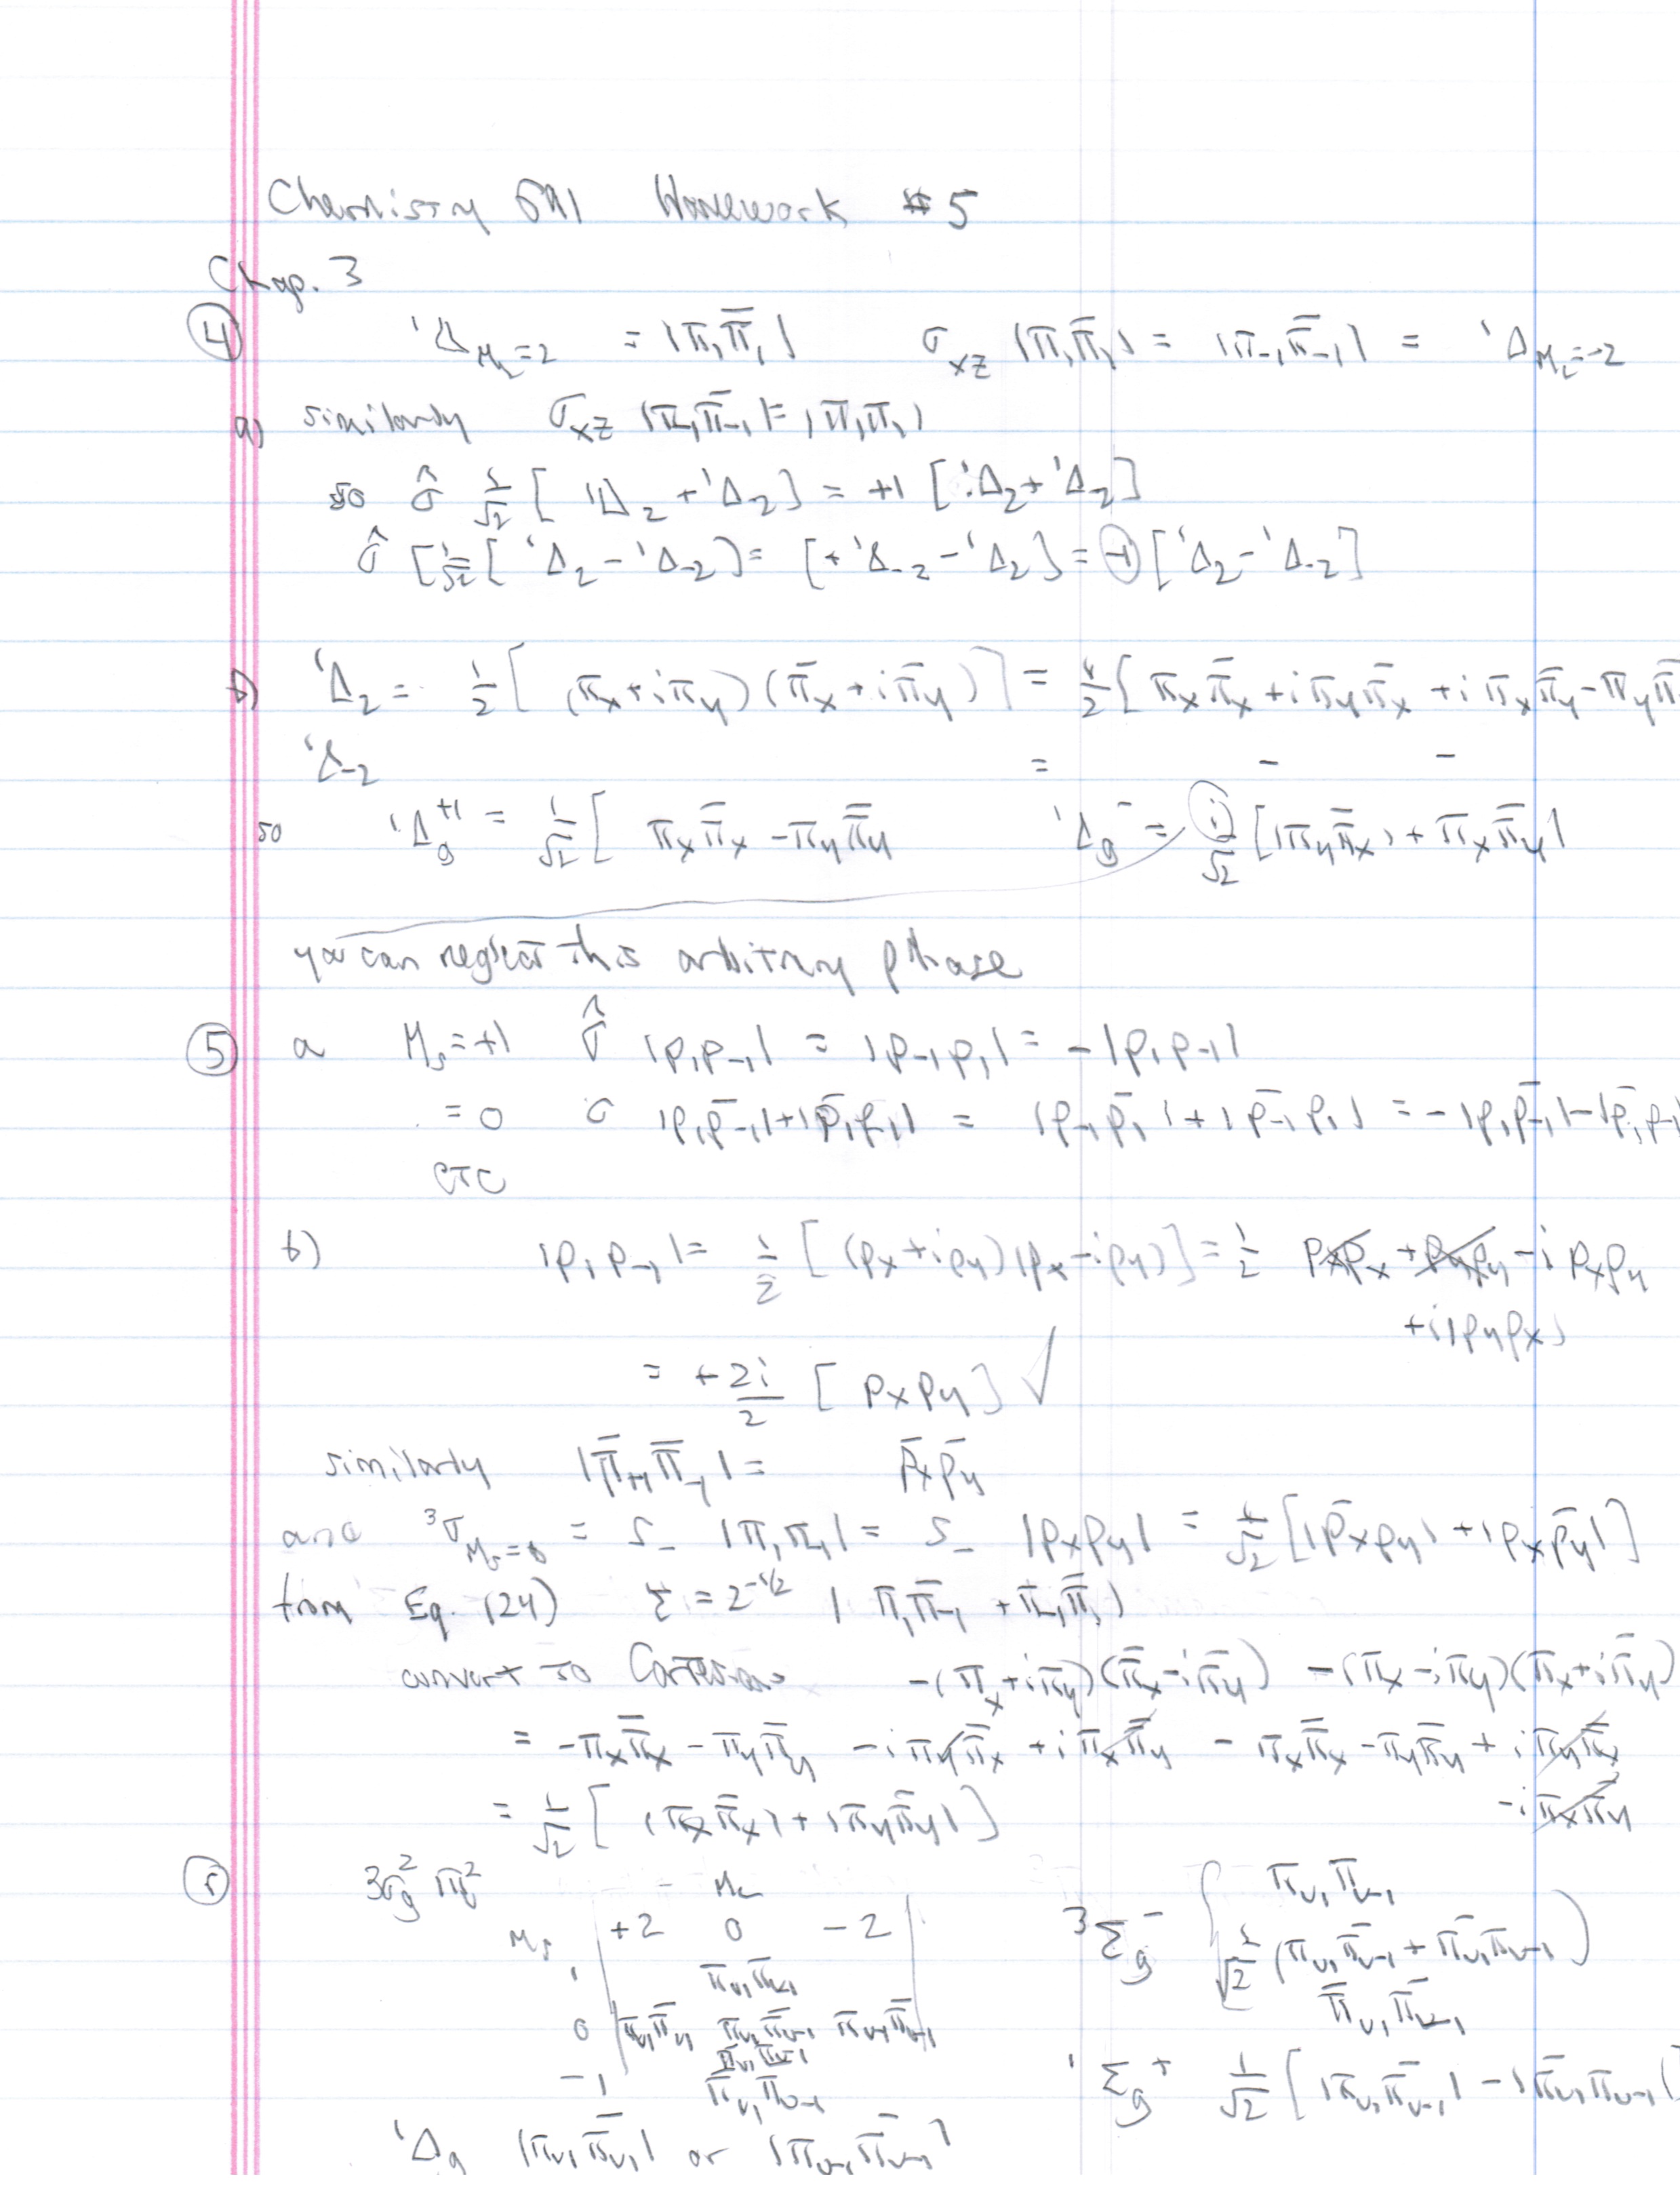 Chemistry 691 Homework #5
Chap. 3
④ ¹Δ_{M_L=2} = |π₁π̄₁| σ_xz |π₁π̄₁| = |π₋₁π̄₋₁| = ¹Δ_{M_L=-2}
a) similarly σ_xz |π₋₁π̄₋₁| = |π₁π̄₁|
so σ̂ 1/√2 [ ¹Δ₂ + ¹Δ₋₂ ] = +1 [ ¹Δ₂ + ¹Δ₋₂ ]
σ̂ [ 1/√2 [ ¹Δ₂ - ¹Δ₋₂ ) = [ + ¹Δ₋₂ - ¹Δ₂ ] = (-1) [ ¹Δ₂ - ¹Δ₋₂ ]
b) ¹Δ₂ = 1/2 [ (π_x + iπ_y)(π̄_x + iπ̄_y) ] = 1/2 [ π_xπ̄_x + iπ_yπ̄_x + iπ_xπ̄_y - π_yπ̄
¹Δ₋₂ = - -
so ¹Δ_g⁺¹ = 1/√2 [ π_xπ̄_x - π_yπ̄_y ¹Δ_g⁻ = i/√2 [ |π_yπ̄_x| + π_xπ̄_y |
you can neglect this arbitrary phase
⑤ a M_s = +1 σ̂ |p₁p₋₁| = |p₋₁p₁| = -|p₁p₋₁|
= 0 σ |p₁p̄₋₁| + |p̄₁p₋₁| = |p₋₁p̄₁| + |p̄₋₁p₁| = -|p₁p̄₋₁| - |p̄₁p₋₁
etc
b) |p₁p₋₁| = 1/2 [ (p_x + ip_y)(p_x - ip_y) ] = 1/2 p_xp_x + p_yp_y - i p_xp_y
+ i|p_yp_x|
= + 2i/2 [ p_xp_y ] ✓
similarly |π̄₊₁π̄₋₁| = p̄_xp̄_y
and ³σ_{M_s=0} = S₋ |π₁π₋₁| = S₋ |p_xp_y| = 1/√2 [ |p̄_xp_y| + |p_xp̄_y| ]
from Eq. (24) Σ = 2^{-1/2} | π₁π̄₋₁ + π₋₁π̄₁ |
convert to Cartesian -(π_x + iπ_y)(π̄_x - iπ̄_y) - (π_x - iπ_y)(π̄_x + iπ̄_y)
= -π_xπ̄_x - π_yπ̄_y - iπ_yπ̄_x + iπ_xπ̄_y - π_xπ̄_x - π_yπ̄_y + iπ_yπ̄_x
- iπ_xπ̄_y
= 1/√2 [ |π_xπ̄_x| + |π_yπ̄_y| ]
3σ_g² π_u² M_L
M_s +2 0 -2 ³Σ_g⁻ { π_{u1}π_{u-1}
1 π_{u1}π_{u-1} 1/√2 (π_{u1}π̄_{u-1} + π̄_{u1}π_{u-1})
0 π_{u1}π̄_{u1} π_{u1}π̄_{u-1} π_{u-1}π̄_{u-1} π̄_{u1}π̄_{u-1}
π̄_{u1}π_{u-1}
-1 π̄_{u1}π̄_{u-1} ¹Σ_g⁺ 1/√2 [ |π_{u1}π̄_{u-1}| - |π̄_{u1}π_{u-1}|
¹Δ_g |π_{u1}π̄_{u1}| or |π_{u-1}π̄_{u-1}|